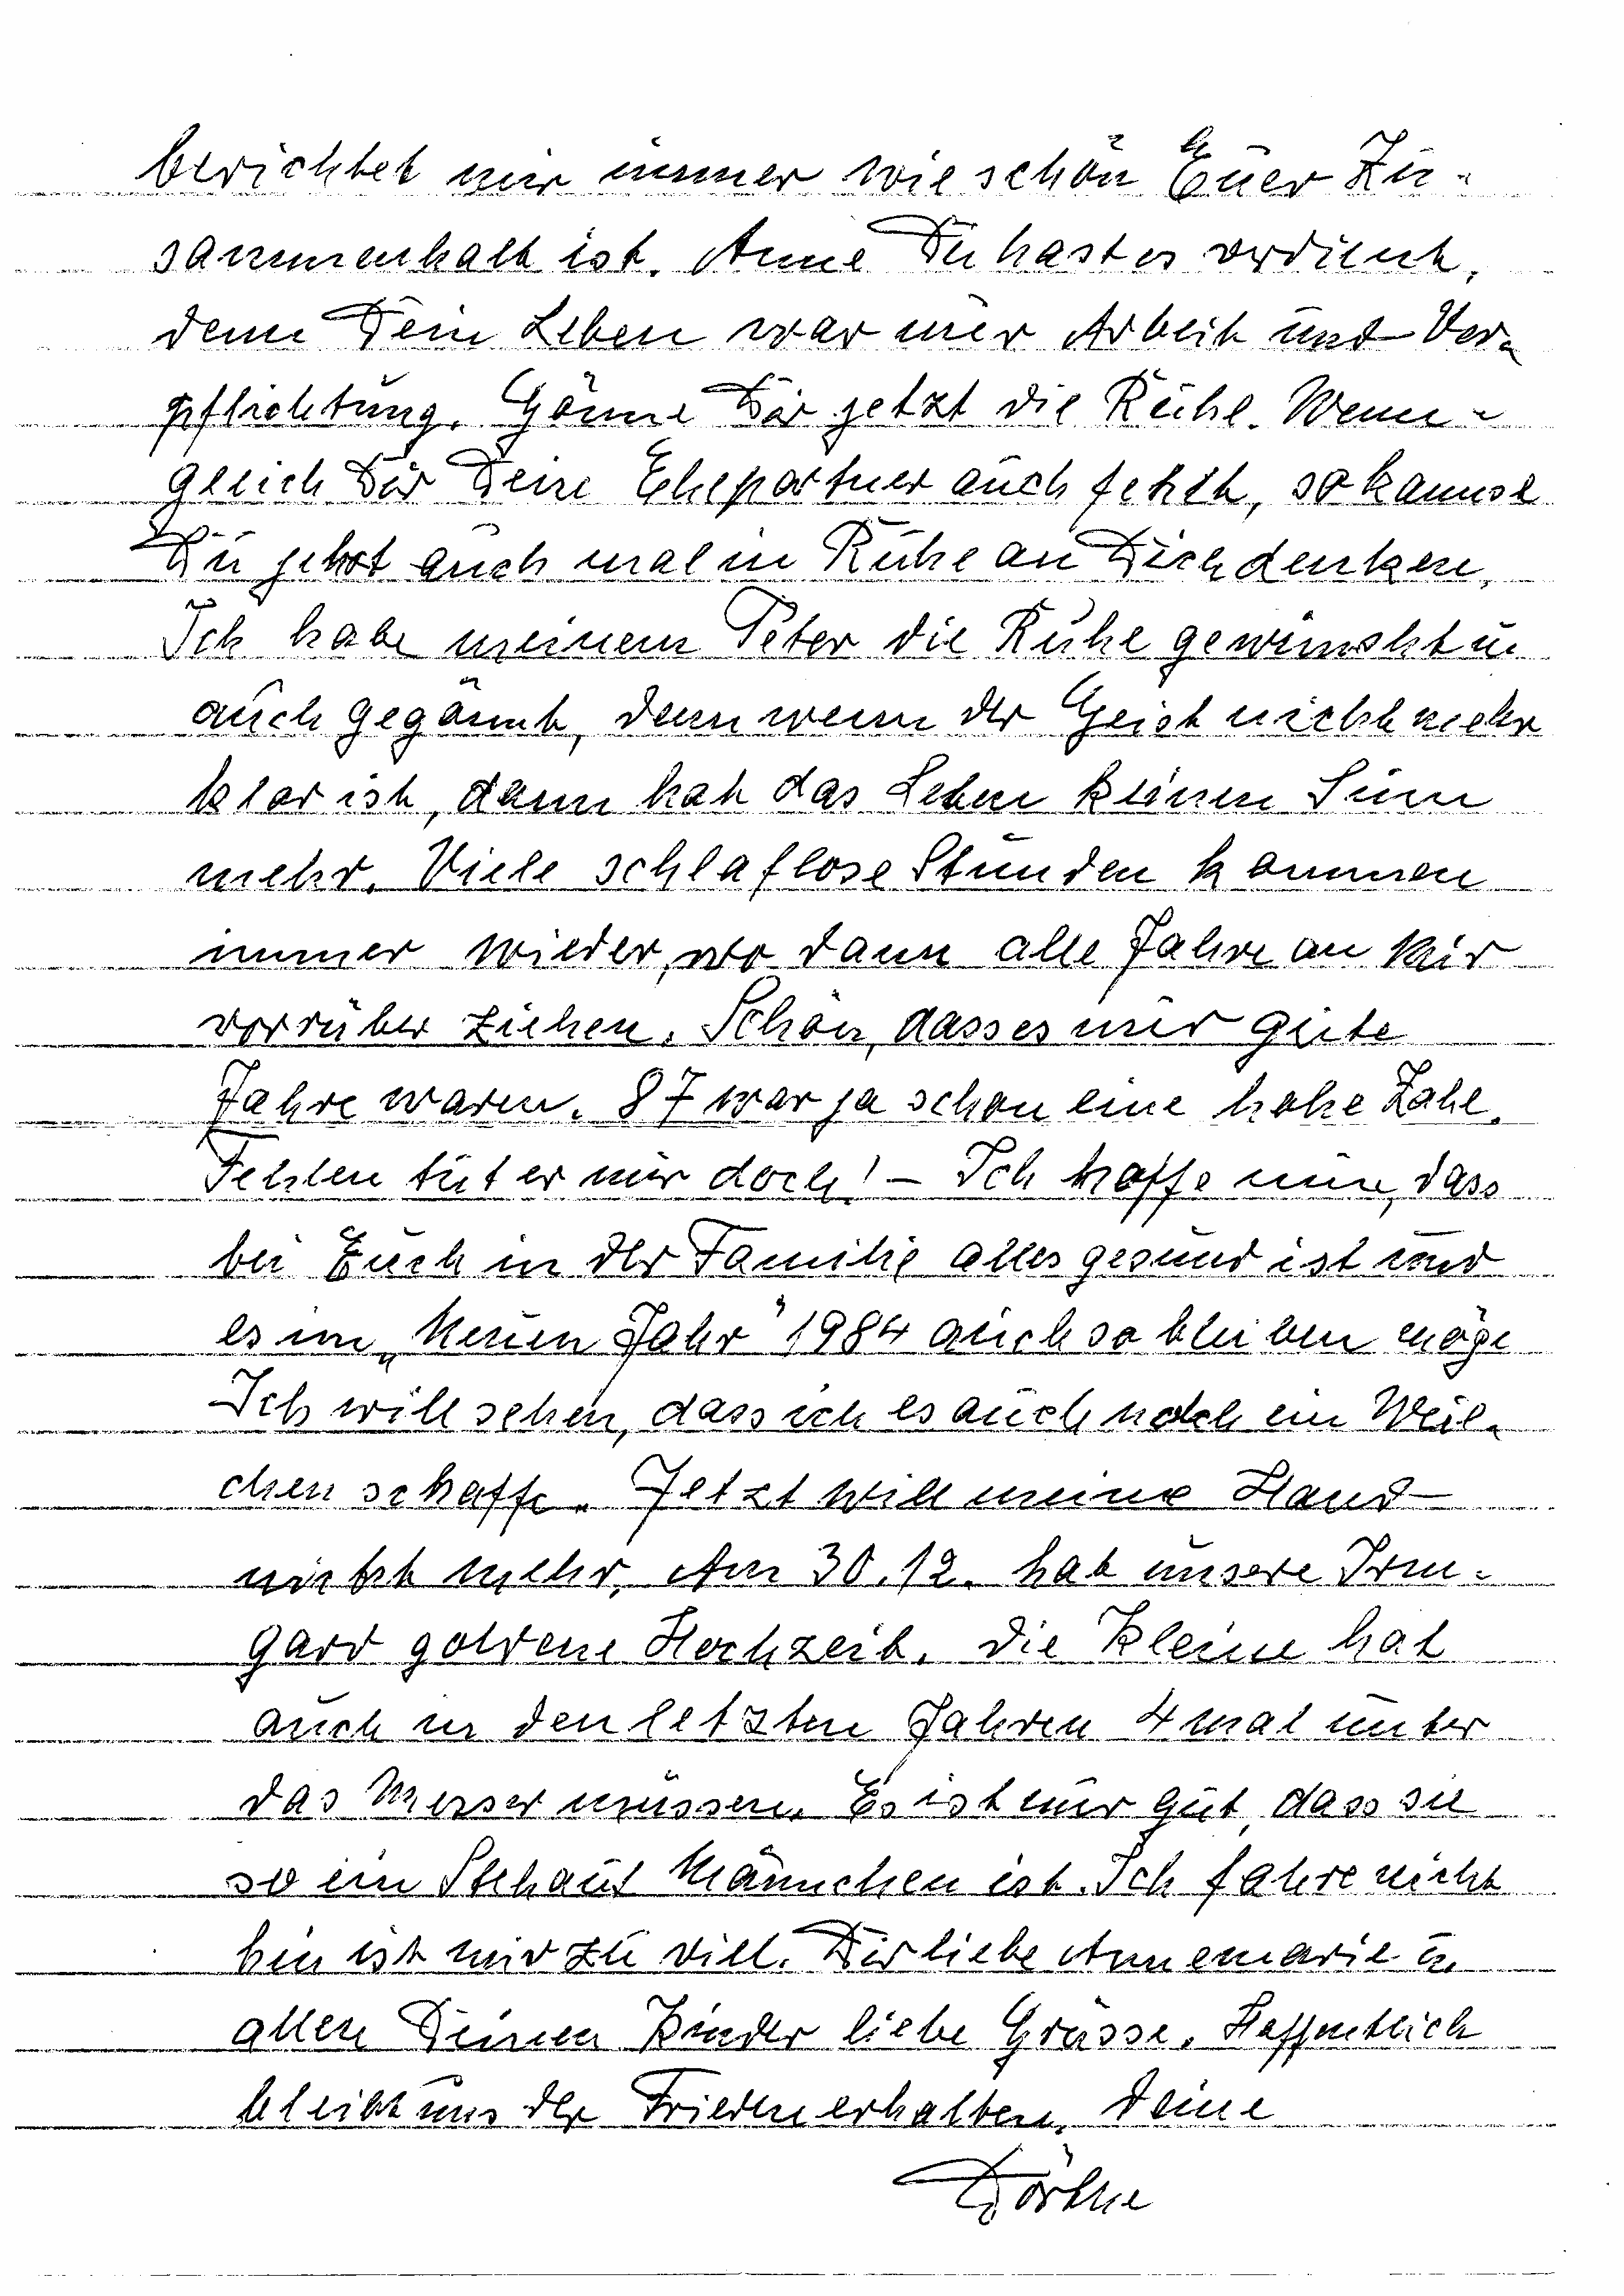 berichtet mir immer wie schön Euer Zu-
sammenhalt ist. Anne Du hast es verdient,
denn Dein Leben war nur Arbeit und Ver-
pflichtung. Gönne Dir jetzt die Ruhe. Wenn-
gleich Dir Dein Ehepartner auch fehlt, so kannst
Du jetzt auch mal in Ruhe an Dich denken.
Ich habe meinem Peter die Ruhe gewünscht u.
auch gegönnt, denn wenn der Geist nicht mehr
klar ist, dann hat das Leben keinen Sinn
mehr. Viele schlaflose Stunden kommen
immer wieder, wo dann alle Jahre an mir
vorrüber ziehen. Schön, dass es nur gute
Jahre waren. 87 war ja schon eine hohe Zahl.
Fehlen tut er mir doch! – Ich hoffe nun, dass
bei Euch in der Familie alles gesund ist und
es im „Neuen Jahr" 1984 auch so bleiben möge
Ich will sehen, dass ich es auch noch ein Weil-
chen schaffe. Jetzt will meine Hand
nicht mehr. Am 30.12. hat unsere Irm-
gard goldene Hochzeit. Die Kleine hat
auch in den letzten Jahren 4 mal unter
das Messer müssen. Es ist nur gut, dass sie
so ein Stehauf Männchen ist. Ich fahre nicht
hin ist mir zu viel. Dir liebe Annemarie u.
allen Deinen Kinder liebe Grüsse. Hoffentlich
bleibt uns der Frieden erhalten. Deine
Dörthe